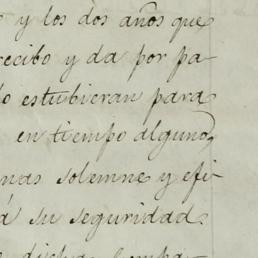 y los dos años que
recibo y da por pa-
estubieran para
en tiempo alguno,
mas solemne y efi-
á su seguridad.
dicha